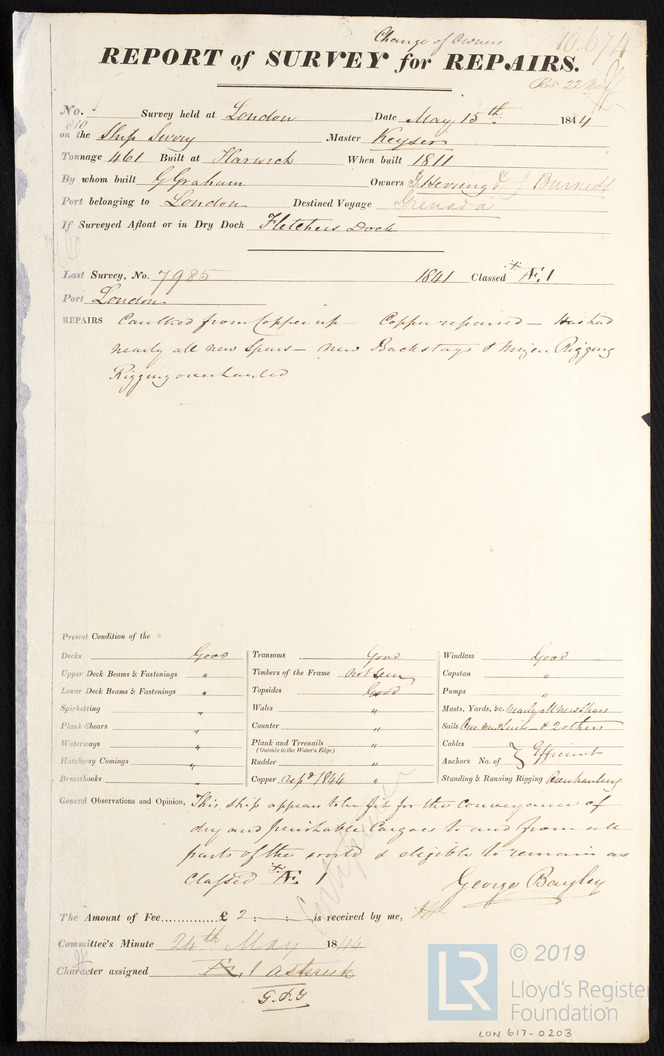 Change of Owners
10.674
REPORT of SURVEY for REPAIRS.
No. Survey held at London Date May 15th 1844
on the Ship Master Keyser
Tonnage 461 Built at Harwich When built 1811
By whom built G Graham Owners & J Burnett
Port belonging to London Destined Voyage Grenada
If Surveyed Afloat or in Dry Dock Fletchers Dock
Last Survey, No. 7985 1841 Classed * Æ.1
Port London
REPAIRS Caulked from Copper up — Copper repaired — Has had
nearly all new Spars — new Backstays & Mizen Rigging
Rigging overhauled
Present Condition of the
Decks Good Transoms Good Windlass Good
Upper Deck Beams & Fastenings " Timbers of the Frame Not Seen Capstan "
Lower Deck Beams & Fastenings " Topsides Good Pumps "
Spirketting " Wales " Masts, Yards, &c. Nearly all new Spars
Plank Shears " Counter " Sails & 2 others
Waterways " Plank and Treenails (Outside to the Water's Edge) " Cables
Hatchway Comings " Rudder " Anchors No. of } Efficient
Breasthooks " Copper repd 1844 " Standing & Running Rigging Overhauled
General Observations and Opinion, This ship appears to be fit for the conveyance of
dry and perishable Cargoes to and from all
parts of the world & eligible to remain as
Classed * Æ 1
George Bayley
The Amount of Fee............ £ 2 : is received by me,
Committee's Minute 24th May 1844
Character assigned Æ.1 asterisk
LR
© 2019
Lloyd's Register
Foundation
LON 617-0203